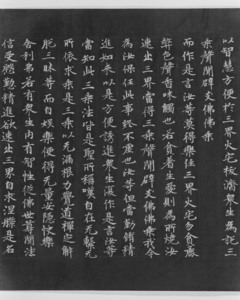 以智慧方便於三界火宅拔濟衆生為説三
乘聲聞辟支佛佛乘
而作是言汝等莫得樂住三界火宅勿貪麁
弊色聲香味觸也若貪著生愛則為所燒汝
速出三界當得三乘聲聞辟支佛佛乘我今
為汝保任此事終不虛也汝等但當勤修精
進如來以是方便誘進衆生復作是言汝等
當知此三乘法皆是聖所稱歎自在無繫無
所依求乘是三乘以無漏根力覺道禪定解
脱三昧等而自娛樂便得无量安隱快樂
舍利弗若有衆生内有智性従佛世尊聞法
信受慇懃精進欲速出三界自求涅槃是名